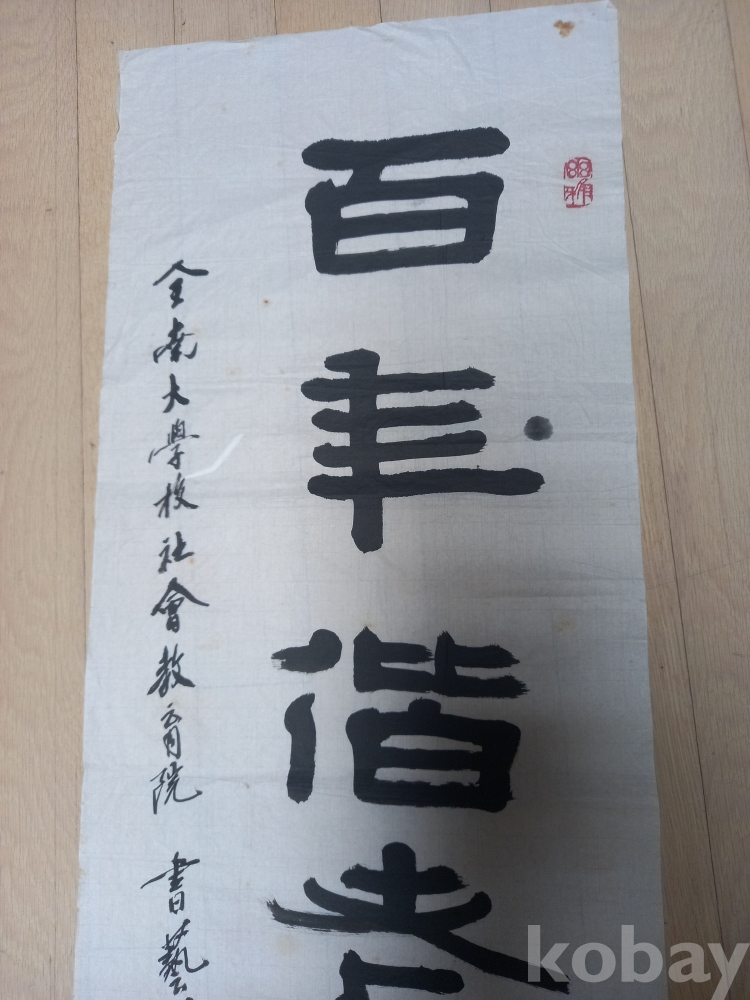 百年偕老
全南大學校社會教育院 書藝
kobay